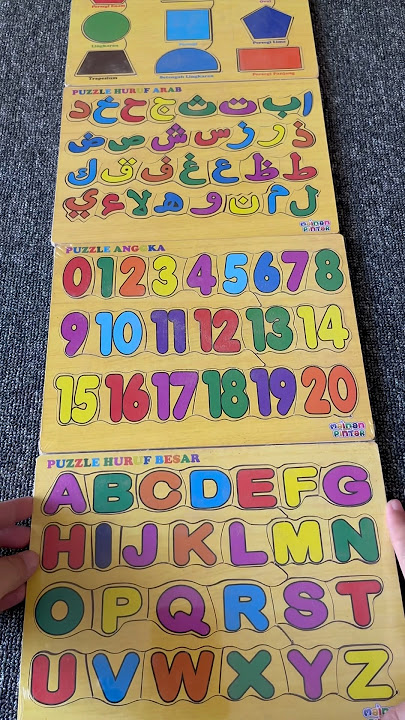 Lingkaran
Persegi Lima
Trapesium
Setengah Lingkaran
Persegi Panjang
PUZZLE HURUF ARAB
ا ب ت ث ج ح خ د
ذ ر ز س ش ص ض
ط ظ ع غ ف ق ك
ل م ن و ه لا ء ي
mainan
PINTAR
PUZZLE ANGKA
0 1 2 3 4 5 6 7 8
9 10 11 12 13 14
15 16 17 18 19 20
mainan
PINTAR
PUZZLE HURUF BESAR
A B C D E F G
H I J K L M N
O P Q R S T
U V W X Y Z